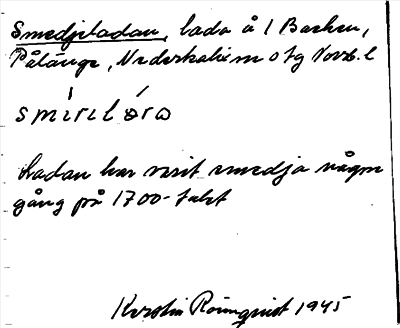 Smedjeladan, lada å 1 Backen,
Pålänge, Nederkalix m o tg Norrb. l
smı̍rılóra
Ladan har varit smedja någon
gång på 1700-talet
Kerstin Rönnquist 1945